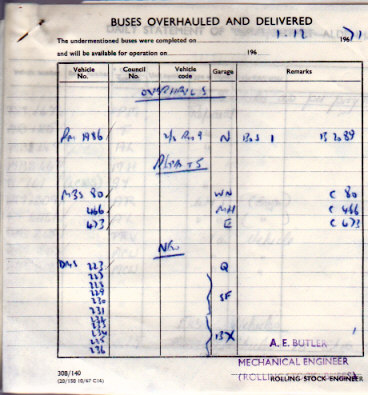 BUSES OVERHAULED AND DELIVERED
The undermentioned buses were completed on 1-12 1967 1
and will be available for operation on 196
Vehicle No. Council No. Vehicle code Garage Remarks
OVERHAULS
RM 1986 N B 2089
REPAINTS
MBS 80 WN C 80
466 MH C 466
473 E C 473
NEW
DMS 223 Q
225
228
229
230 SF
231
234
235 BX
236
A. E. BUTLER
MECHANICAL ENGINEER
308/140
(20/150 10/67 C1A) ROLLING STOCK ENGINEER